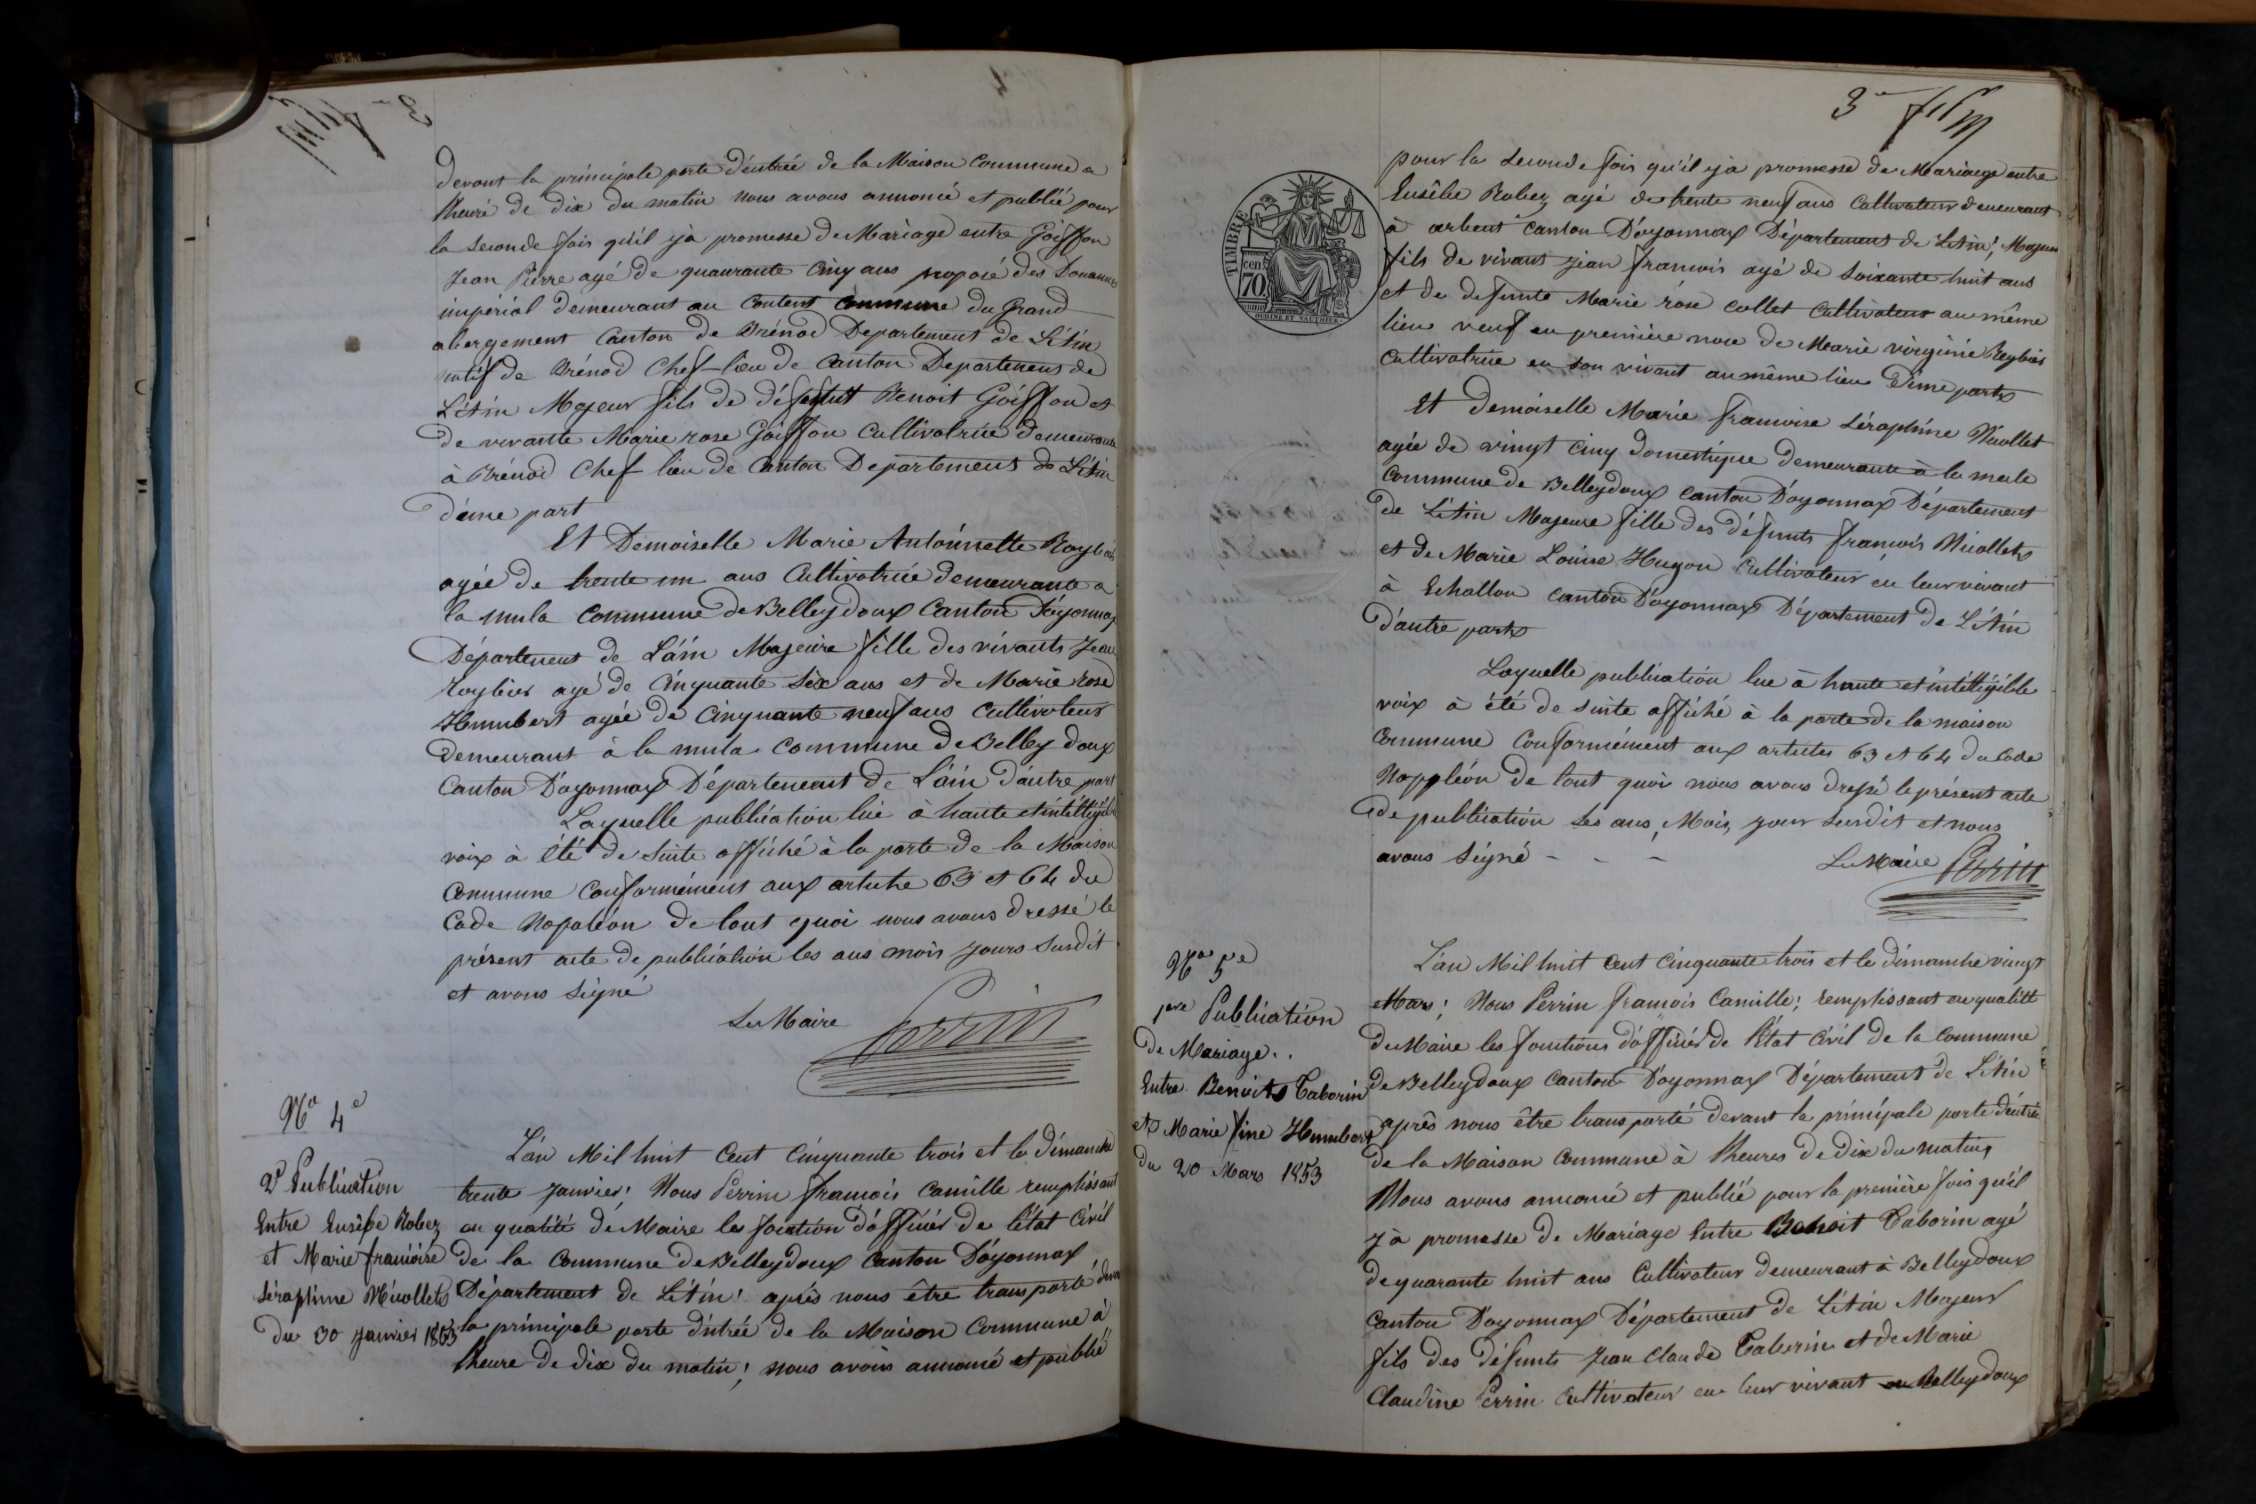 3e
devant la principale porte d'éntrée de la Maison Commune a
l'heure de dix du matin nous avons annoncé et publié pour
la seconde fois qu'il y à promesse de Mariage entre Goiffon
Jean Pierre agé de quaurante cinq ans préposé des Douannes
impérial demeurant au Content Commune du Grand
abergement Canton de Brénod Département de L'Ain
natif de Brénod Chef-lieu de Canton Département de
L'Ain Majeur fils de défeut Benoit Goiffon et
de vivante Marie rose Goiffon Cultivatrice demeurante
à Brénod Chef lieu de Canton Département de L'Ain
d'une part
Et Demoiselle Marie Antoinnette Roybier
agée de trente un ans Cultivatrice demeurante a
la mula Commune de Belleydoux Canton D'oyonnax
Département de L'ain Majeure fille des vivants Jean
roybier agé de Cinquante six ans et de Marie rose
Humbert agée de Cinquante neuf ans Cultivateur
demeurant à la mula Commune de Belley doux
Canton D'oyonnax Département de L'ain d'autre part
Laquelle publication lue à haute et intélligible
voix à été de suite affiché à la porte de la Maison
Commune Conformément aux article 63 et 64 du
Code Napoléon de tout quoi nous avons dressé le
présent acte de publication les ans mois jours susdit
et avons signé
Le Maire Perrin
No 4e
2e Publication
Entre Eusèbe Robez
et Marie françoise
séraphine Nicollet
du 30 janvier 1853
L'an Mil huit Cent Cinquante trois et le dimanche
trente janvier; Nous Perrin françois Camille remplissant
en qualité de Maire les fonction d'officier de l'état Civil
de la Commune de Belleydoux Canton D'oyonnax
Département de L'Ain; après nous être transporté devant
la principale porte d'ntrée de la Maison Commune à
l'heure de dix du matin; nous avons annoncé et publié
3e
TIMBRE
70 cen
pour la seconde fois qu'il y à promesse de Mariage entre
Eusèbe Robez agé de trente neuf ans Cultivateur demeurant
à arbent Canton D'oyonnax Département de L'Ain; Majeur
fils de vivant jean françois agé de soixante huit ans
et de défunte Marie rose collet Cultivateur au même
lieu veuf en première noce de Marie virginie Reybier
Cultivatrice en son vivant au même lieu d'une part
Et demoiselle Marie françoise séraphine Nicollet
agée de vingt cinq domestique demeurante à la mula
Commune de Belleydoux Canton D'oyonnax Département
de L'Ain Majeure fille des défunts françois Nicollet
et de Marie Louise Hugon Cultivateur én leur vivant
à Echallon Canton D'oyonnax Département de L'Ain
d'autre part
Laquelle publication lue à haute et intélligible
voix à été de suite affiché à la porte de la maison
Commune Conformément aux articles 63 et 64 du Code
Nappléon de tout quoi nous avons dressé le présent acte
de publication les ans, Mois, jour susdit et nous
avons signé - - -
Le Maire Perrin
No 5e
1ère Publication
de Mariage..
Entre Benoit Taborin
et Marie fine Humbert
du 20 Mars 1853
L'an Mil huit Cent Cinquante trois et le dimanche vingt
Mars; Nous Perrin françois Camille; remplissant en qualité
de Maire les fonctions d'officier de l'État Civil de la Commune
de Belleydoux Canton D'oyonnax Département de L'Ain
après nous être transporté devant la principale porte d'entrée
de la Maison Commune à l'heures de dix du matin,
Nous avons annoncé et publié pour la première fois qu'il
y à promesse de Mariage Entre Benoit Taborin agé
de quarante huit ans Cultivateur demeurant à Belleydoux
Canton D'oyonnax Département de L'Ain Majeur
fils des défunts jean Claude Taborin et de Marie
Claudine Perrin Cultivateur en leur vivant à Belleydoux